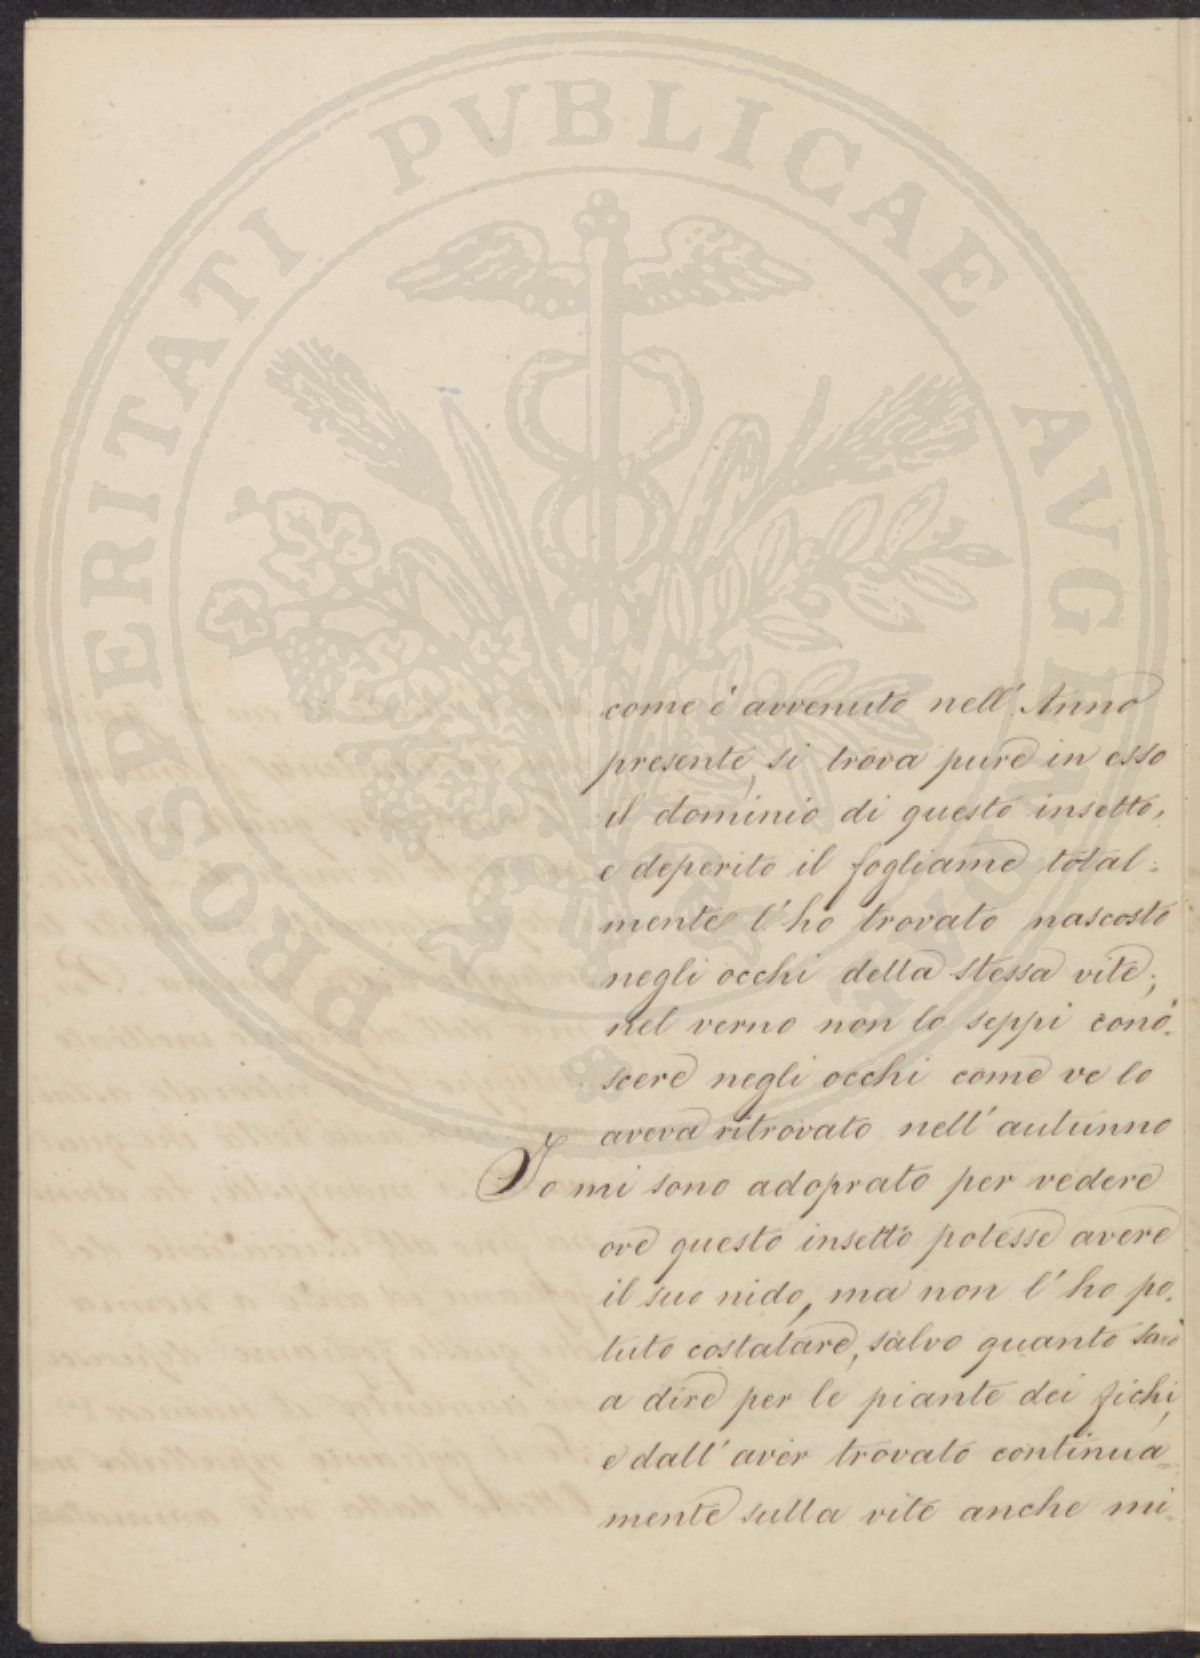 PROSPERITATI PVBLICAE AVGENDAE
come é avvenuto nell'Anno
presente, si trova pure in esso
il dominio di questo insetto,
e deperito il fogliame total:
mente l'ho trovato nascosto
negli occhi della stessa vite;
nel verno non lo seppi cono.
scere negli occhi come ve lo
aveva ritrovato nell'autunno
Io mi sono adoprato per vedere
ove questo insetto potesse avere
il suo nido, ma non l'ho po.
tuto costatare, salvo quanto sarò
a dire per le piante dei fichi,
e dall'aver trovato continua=
mente sulla vite anche mi=